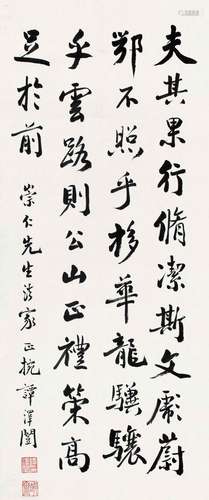 夫其果行脩潔斯文彪蔚
鄂不照乎栘華龍驥驤
乎雲路則公山正禮策高
足於前
崇仁先生法家正捥 譚澤闓